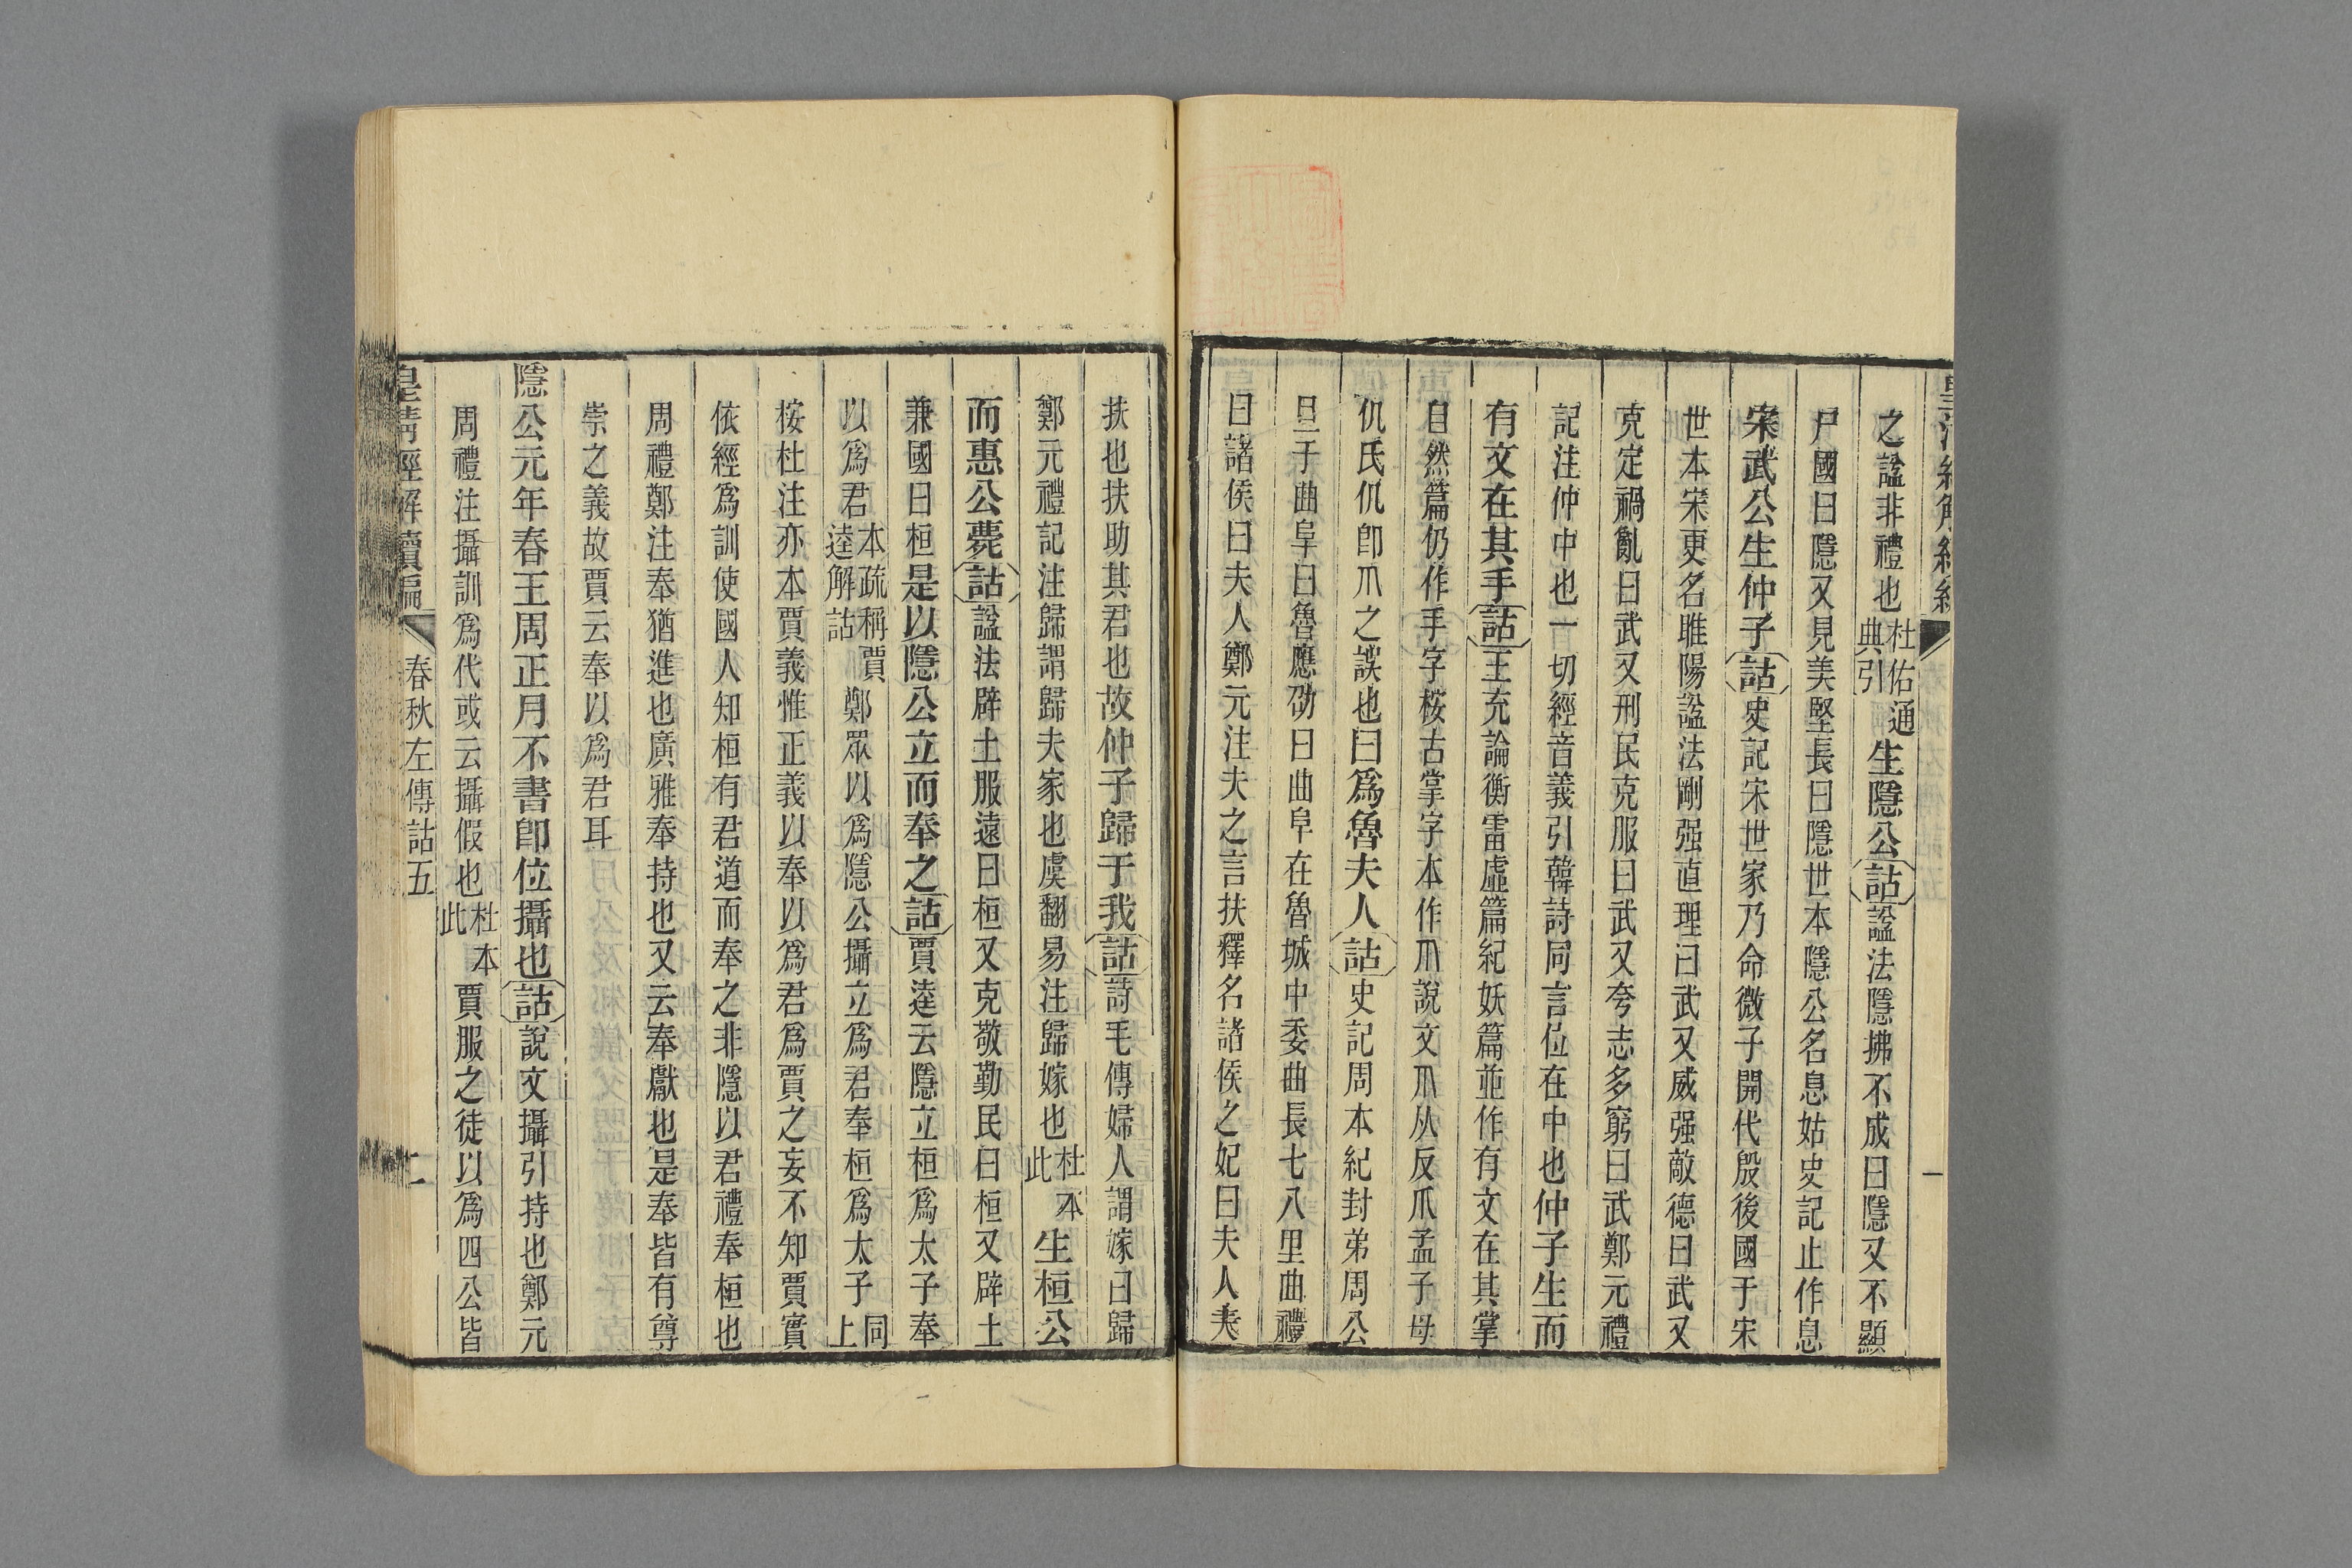 之謚非禮也杜佑通典引生隱公詁謚法隱拂不成曰隱又不顯
尸國曰隱又見美堅長曰隱世本隱公名息姑史記止作息
宋武公生仲子詁史記宋世家乃命微子開代殷後國于宋
世本宋更名睢陽謚法剛强直理曰武又威强敵德曰武又
克定禍亂曰武又刑民克服曰武又夸志多窮曰武鄭元禮
記注仲中也一切經音義引韓詩同言位在中也仲子生而
有文在其手詁王充論衡雷虛篇紀妖篇並作有文在其掌
自然篇仍作手字桉古掌字本作爪說文爪从反爪孟子母
仉氏仉卽爪之誤也曰爲魯夫人詁史記周本紀封弟周公
旦于曲阜曰魯應劭曰曲阜在魯城中委曲長七八里曲禮
曰諸侯曰夫人鄭元注夫之言扶釋名諸侯之妃曰夫人夫
扶也扶助其君也故仲子歸于我詁詩毛傳婦人謂嫁曰歸
鄭元禮記注歸謂歸夫家也虞翻易注歸嫁也杜本此生桓公
而惠公薨詁謚法辟土服遠曰桓又克敬勤民曰桓又辟土
兼國曰桓是以隱公立而奉之詁賈逵云隱立桓爲太子奉
以爲君本疏稱賈逵解詁鄭眾以爲隱公攝立爲君奉桓爲太子同上
桉杜注亦本賈義惟正義以奉以爲君爲賈之妄不知賈實
依經爲訓使國人知桓有君道而奉之非隱以君禮奉桓也
周禮鄭注奉猶進也廣雅奉持也又云奉獻也是奉皆有尊
崇之義故賈云奉以爲君耳
隱公元年春王周正月不書卽位攝也詁說文攝引持也鄭元
周禮注攝訓爲代或云攝假也杜本此賈服之徒以爲四公皆
皇清經解續編 春秋左傳詁五 二